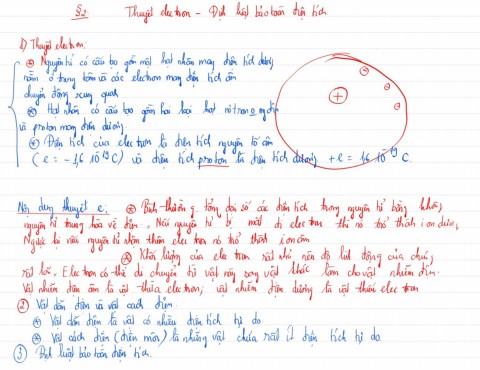 §2 Thuyết electron - Định luật bảo toàn điện tích
1) Thuyết electron:
* Nguyên tử có cấu tạo gồm một hạt nhân mang điện tích dương
nằm ở trung tâm và các electron mang điện tích âm
chuyển động xung quanh
* Hạt nhân có cấu tạo gồm hai loại hạt nơtron o mg điện
và proton mang điện dương.
* Điện tích của electron là điện tích nguyên tố âm
(e = -1,6 10⁻¹⁹ C) và điện tích proton là điện tích dương +e = 1,6 10⁻¹⁹ C.
+
Nội dung thuyết e: * Bình thường tổng đại số các điện tích trong nguyên tử bằng không,
nguyên tử trung hòa về điện. Nếu nguyên tử bị mất đi electron thì nó trở thành ion dương,
Ngược lại nếu nguyên tử nhận thêm electron nó trở thành ion âm
* Khối lượng của electron rất nhỏ nên độ linh động của chúng
rất lớn. Electron có thể di chuyển từ vật này sang vật khác làm cho vật nhiễm điện.
Vật nhiễm điện âm là vật thừa electron; vật nhiễm điện dương là vật thiếu electron
2 Vật dẫn điện và vật cách điện.
* Vật dẫn điện là vật có nhiều điện tích tự do
* Vật cách điện (điện môi) là những vật chứa rất ít điện tích tự do.
3 Định luật bảo toàn điện tích.